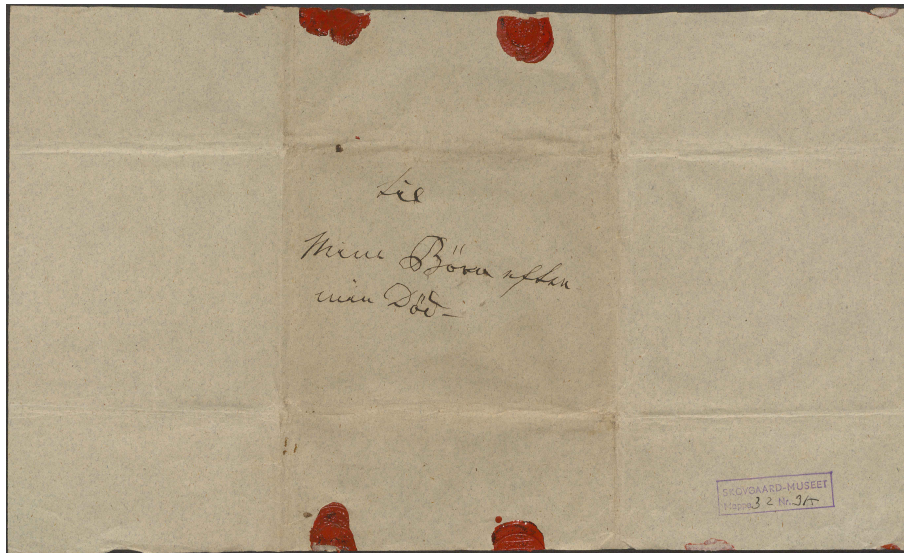 til
Mine Börn efter
min Död –
SKOVGAARD-MUSEET
Mappe 32 Nr. 3A